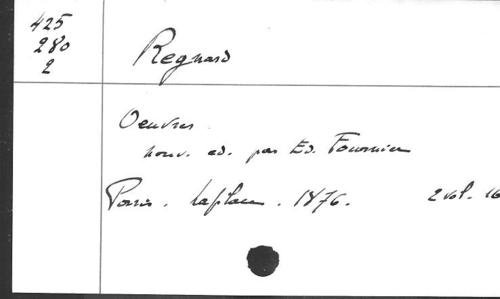 425
280
2
Regnard
Oeuvres
nouv. ed. par Ed. Fournier
Paris. Laplace. 1876. 2 vol. 16